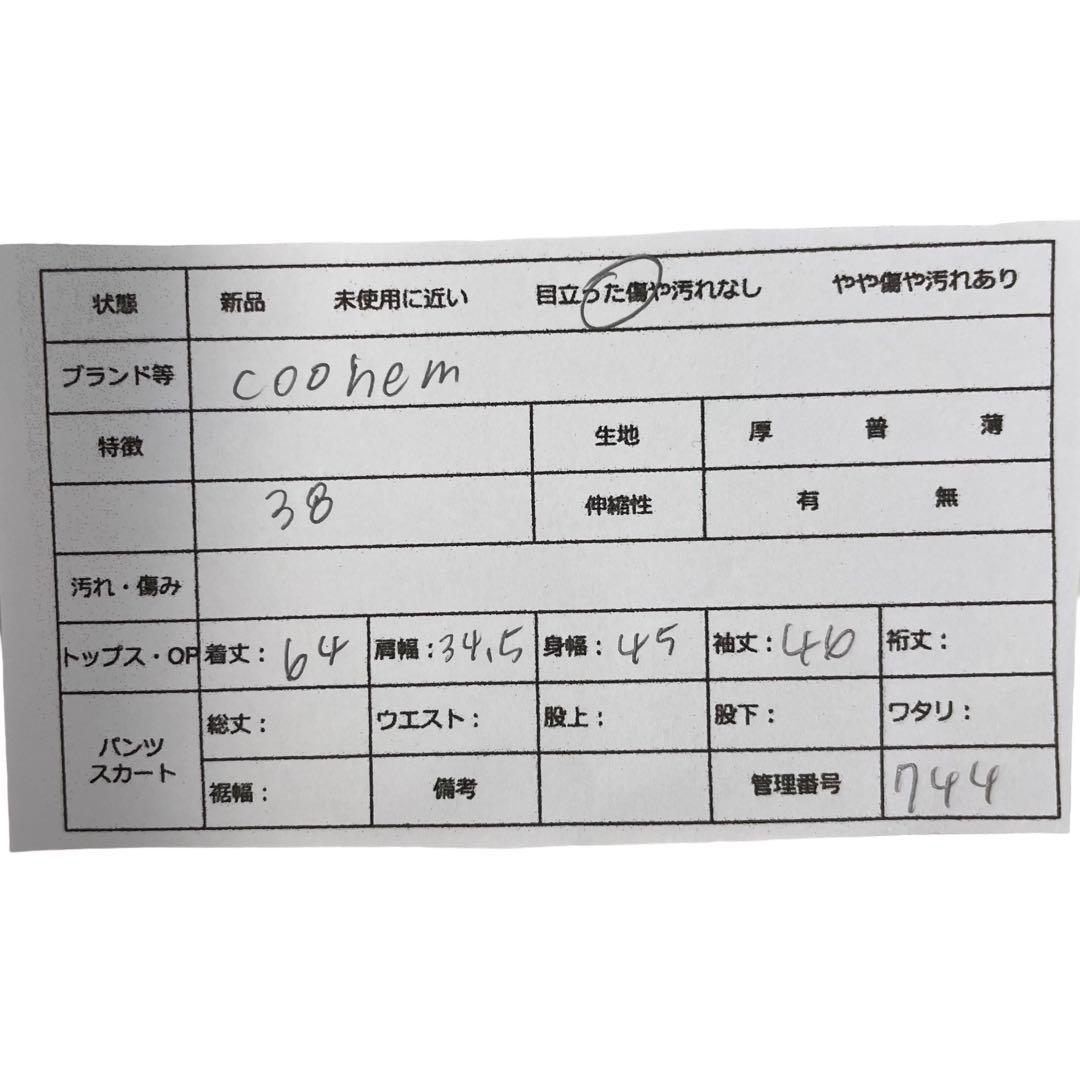 状態 新品 未使用に近い 目立った傷や汚れなし やや傷や汚れあり
ブランド等 coohem
特徴 生地 厚 普 薄
38 伸縮性 有 無
汚れ・傷み
トップス・OP 着丈： 64 肩幅：34.5 身幅： 45 袖丈：46 裄丈：
パンツ スカート 総丈： ウエスト： 股上： 股下： ワタリ：
裾幅： 備考 管理番号 744